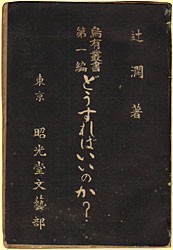 辻潤著
烏有叢書
第一編
どうすればいいのか?
東京 昭光堂文藝部